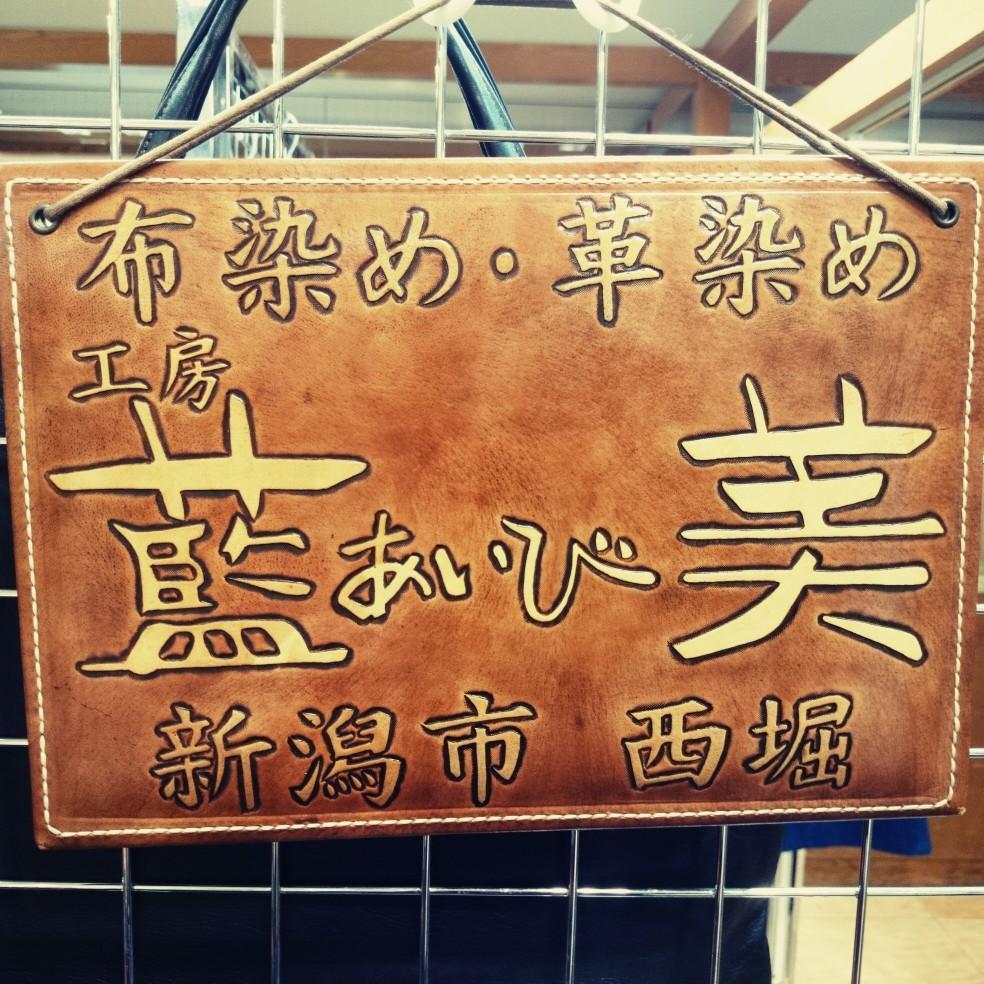 布染め・革染め
工房
藍 あいび 美
新潟市 西堀